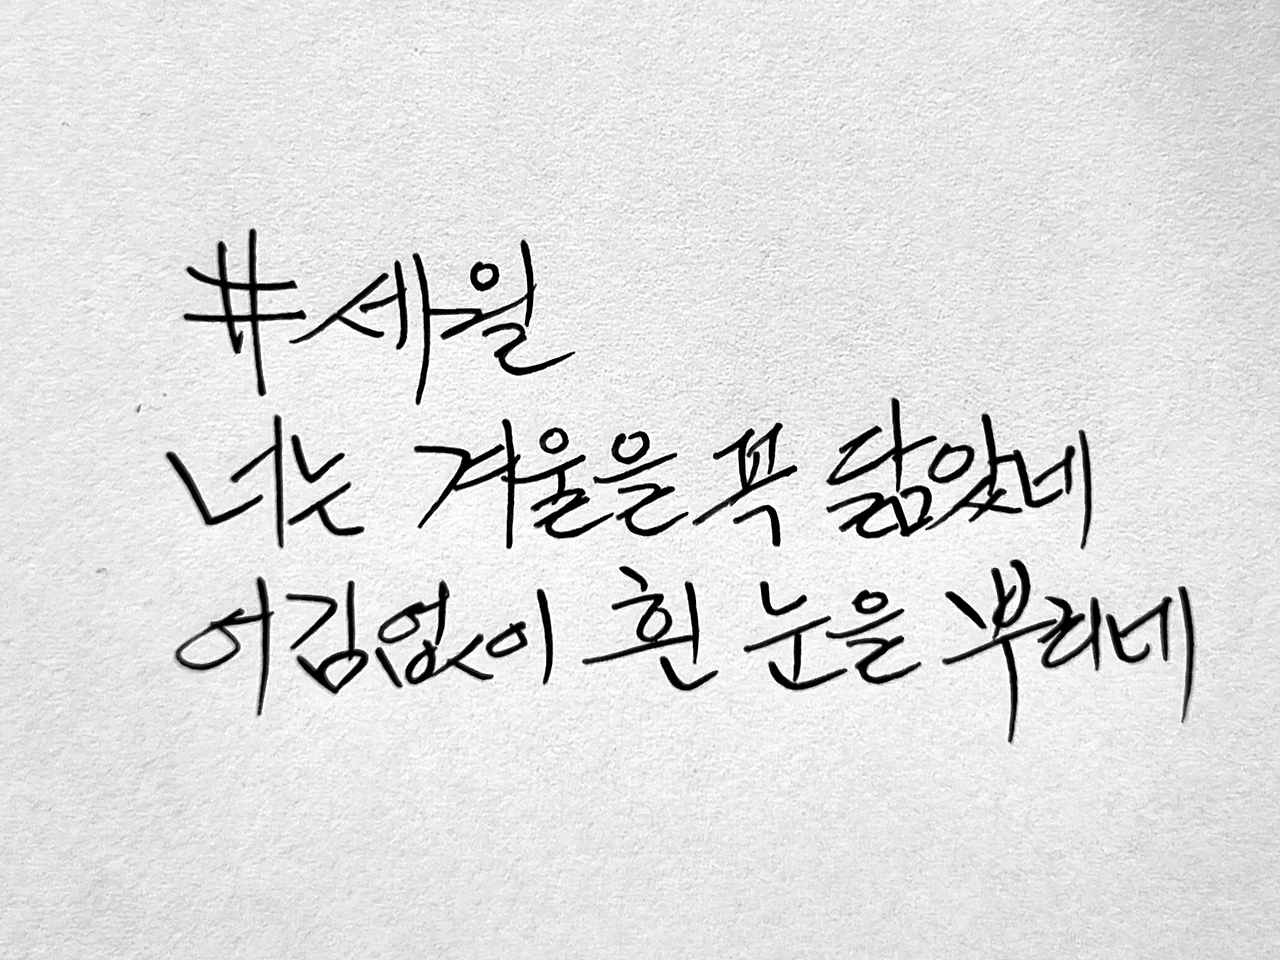 #세월
너는 겨울을 꼭 닮았네
어김없이 흰 눈을 뿌리네